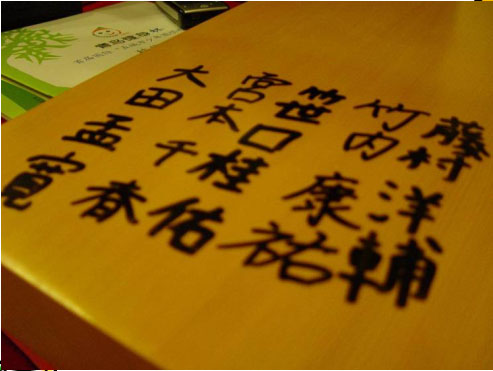 藤村洋輔
竹内康祐
笹口桂佑
宮本千春
大田孟